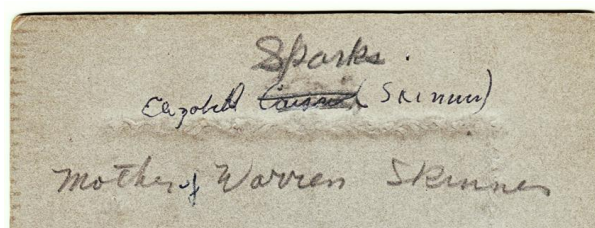 Sparks.
Elizabeth ( Skinner)
Mother of Warren Skinner